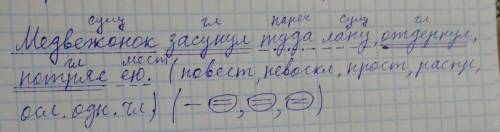 сущ гл нареч сущ гл
Медвежонок засунул туда лапу, отдернул,
гл мест
потряс ею. (повест, невоскл, прост, распр,
осл. одн. чл,) (– =, =, =)